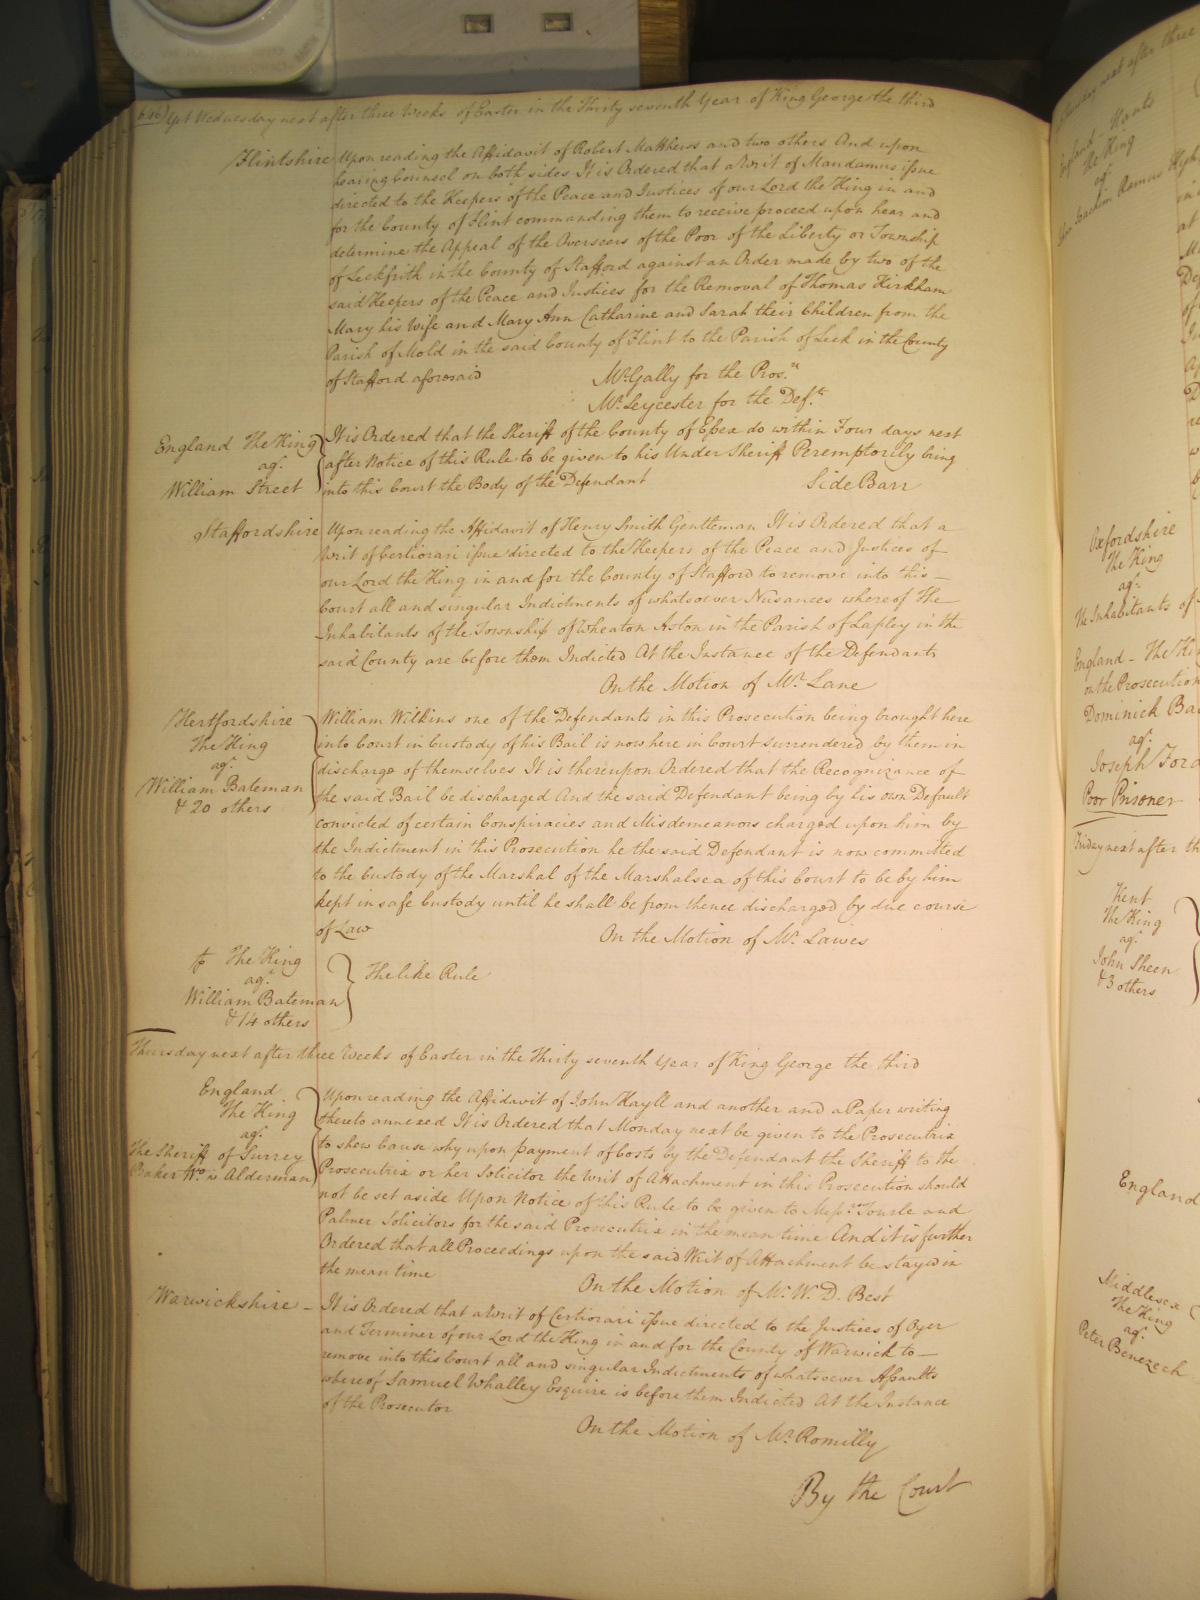 646) Yet Wednesday next after three Weeks of Easter in the Thirty seventh Year of King George the third
Flintshire Upon reading the Affidavit of Robert Matthews and two others And upon
hearing Counsel on both sides It is Ordered that a Writ of Mandamus issue
directed to the Keepers of the Peace and Justices of our Lord the King in and
for the County of Flint commanding them to receive proceed upon hear and
determine the Appeal of the Overseers of the Poor of the Liberty or Township
of Leekfrith in the County of Stafford against an Order made by two of the
said Keepers of the Peace and Justices for the Removal of Thomas Kirkham
Mary his Wife and Mary Ann Catharine and Sarah their Children from the
Parish of Mold in the said County of Flint to the Parish of Leek in the County
of Stafford aforesaid Mr. Gally for the Pros.r
Mr. Leycester for the Def.t
England The King
agt.
William Street
It is Ordered that the Sheriff of the County of Essex do within Four days next
after Notice of this Rule to be given to his Under Sheriff Peremptorily bring
into this Court the Body of the Defendant Side Barr
Staffordshire Upon reading the Affidavit of Henry Smith Gentleman It is Ordered that a
Writ of Certiorari issue directed to the Keepers of the Peace and Justices of
our Lord the King in and for the County of Stafford to remove into this
Court all and singular Indictments of whatsoever Nusances whereof The
Inhabitants of the Township of Wheaton Aston in the Parish of Lapley in the
said County are before them Indicted At the Instance of the Defendants
On the Motion of Mr. Lane
Hertfordshire
The King
agt.
William Bateman
& 20 others
William Wilkins one of the Defendants in this Prosecution being brought here
into Court in Custody of his Bail is now here in Court surrendered by them in
discharge of themselves It is thereupon Ordered that the Recognizance of
the said Bail be discharged And the said Defendant being by his own Default
convicted of certain Conspiracies and Misdemeanors charged upon him by
the Indictment in this Prosecution he the said Defendant is now committed
to the Custody of the Marshal of the Marshalsea of this Court to be by him
kept in safe Custody until he shall be from thence discharged by due course
of Law On the Motion of Mr. Lawes
The King
agt.
William Bateman
& 14 others
The like Rule
Thursday next after three Weeks of Easter in the Thirty seventh Year of King George the third
England
The King
agt.
The Sheriff of Surrey
Baker Wm. v Alderman
Upon reading the Affidavit of John Kayll and another and a Paper writing
thereto annexed It is Ordered that Monday next be given to the Prosecutrix
to shew Cause why upon payment of Costs by the Defendant the Sheriff to the
Prosecutrix or her Solicitor the Writ of Attachment in this Prosecution should
not be set aside Upon Notice of this Rule to be given to Messrs. Tourle and
Palmer Solicitors for the said Prosecutrix in the mean time And it is further
Ordered that all Proceedings upon the said Writ of Attachment be stayed in
the mean time On the Motion of Mr. W. D. Best
Warwickshire It is Ordered that a Writ of Certiorari issue directed to the Justices of Oyer
and Terminer of our Lord the King in and for the County of Warwick to
remove into this Court all and singular Indictments of whatsoever Assaults
whereof Samuel Whalley Esquire is before them Indicted At the Instance
of the Prosecutor
On the Motion of Mr. Romilly
By the Court
next after three
England - Hants
The King
agt.
Oxfordshire
The King
agt.
The Inhabitants of
England - The
on the Prosecution
Dominick
agt.
Joseph
Poor Prisoner
Friday next after
Kent
The King
agt.
John Sheen
& 3 others
England
Middlesex
The King
agt.
Peter Benezech